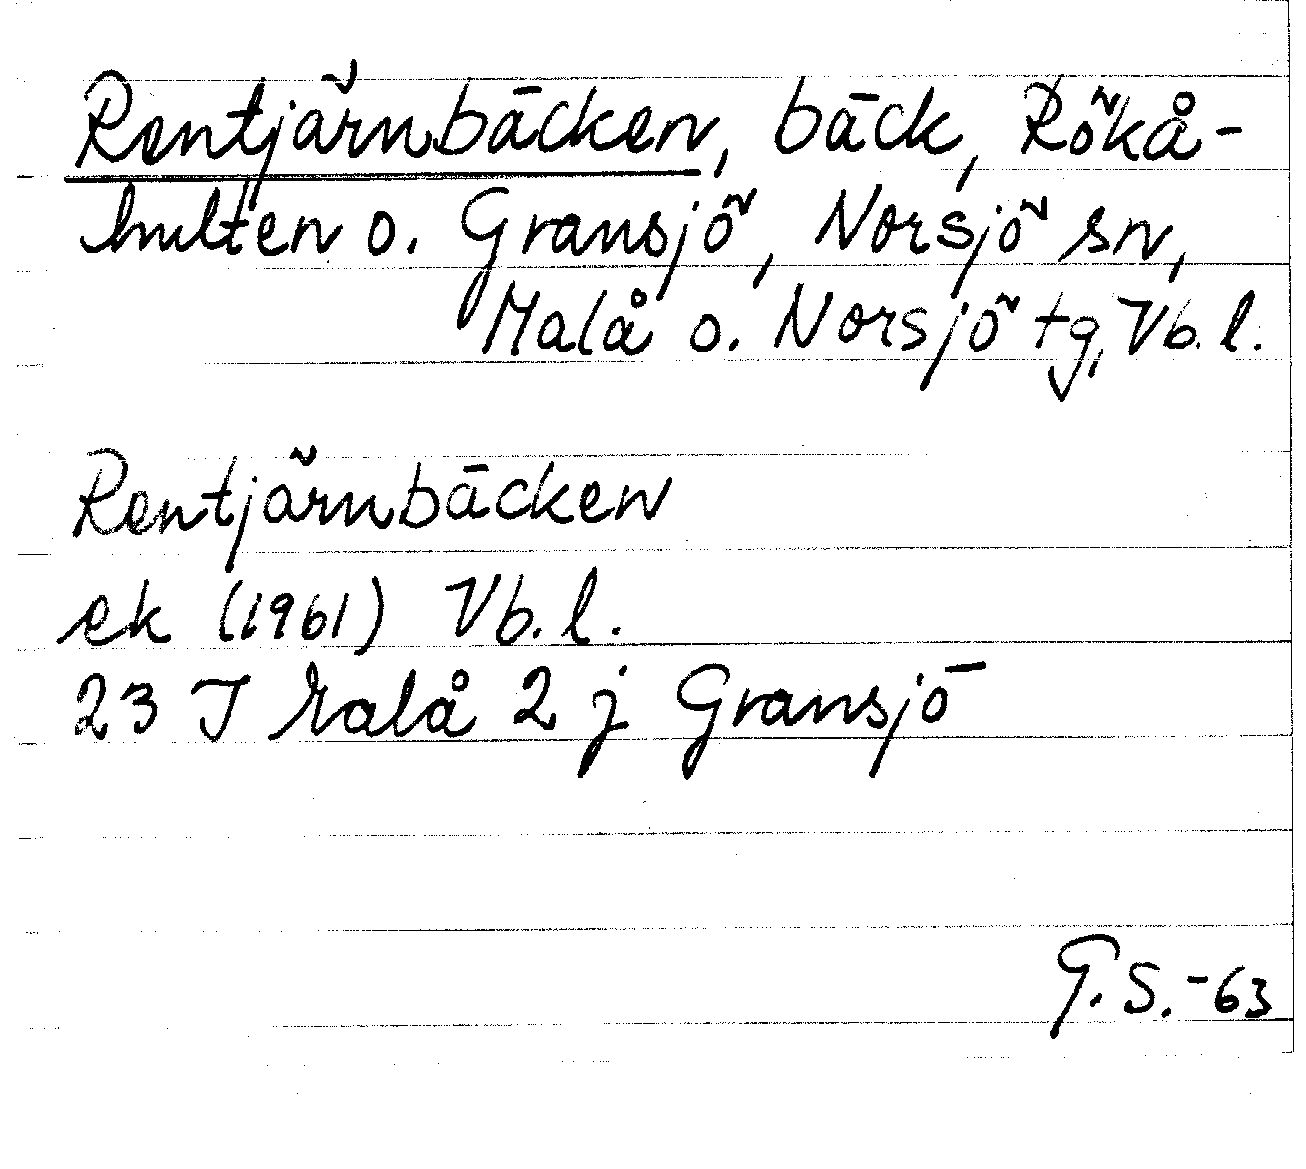 Rentjärnbäcken, bäck, Rökå-
hulten o. Gransjö, Norsjö sn,
Malå o. Norsjö tg, Vb. l.
Rentjärnbäcken
ek (1961) Vb. l.
23 J Malå 2 j Gransjö
G. S. -63